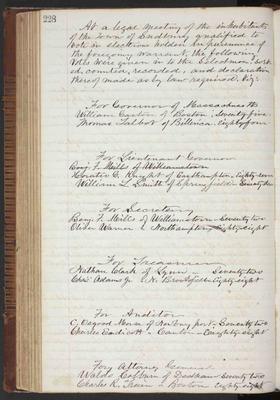 228
At a legal meeting of the inhabitants
of the town of Sudbury qualified to
vote in elections holden in pursuance of
the foregoing warrant, the following
Votes were given in to the Selectmen: sort
ed, counted, recorded, and declaration
thereof made as by law required. Viz:
For Governor of Massachusetts
William Gaston of Boston, Seventy five
Thomas Talbot of Billerica. Eighty four
For Lieutenant Governor
Benj. F. Mills of Williamstown
Horatio G. Knight of Easthampton, Eighty seven
William L. Smith of Springfield Seventy
For Secretary
Benj. F. Mills of Williamstown Seventy two
Oliver Warner " Northampton Eighty eight
For Treasurer
Nathan Clark of Lynn — Seventy two
Chas. Adams Jr. " N. Brookfield Eighty eight
For Auditor
C. Osgood Morse of Newburyport, Seventy two
Charles Endicott " Canton — Eighty eight
For Attorney General
Waldo Colburn of Dedham Seventy two
Charles R. Train " Boston Eighty eight